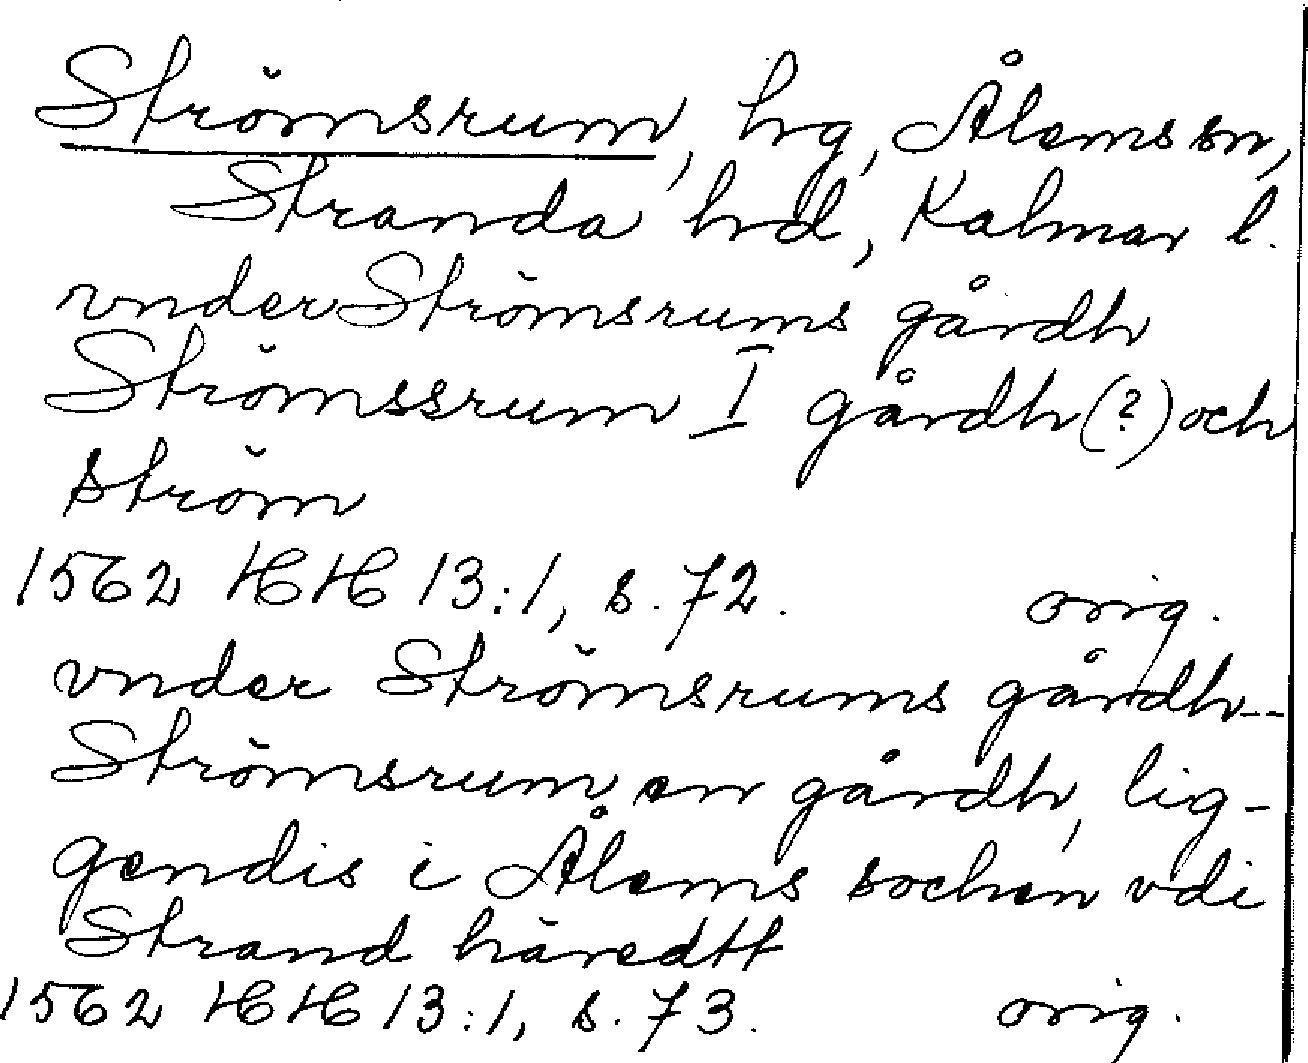 Strömsrum, hrg, Ålems sn,
Stranda hrd, Kalmar l.
vnder Strömsrums gårdh
Strömssrum I gårdh (?) och
ström
1562 HH 13:1, s. 72. orig.
vnder Strömsrums gårdh--
Strömsrum en gårdh, lig-
gendis i Ålems sochen vdi
Strand häredtt
1562 HH 13:1, s. 73. orig.